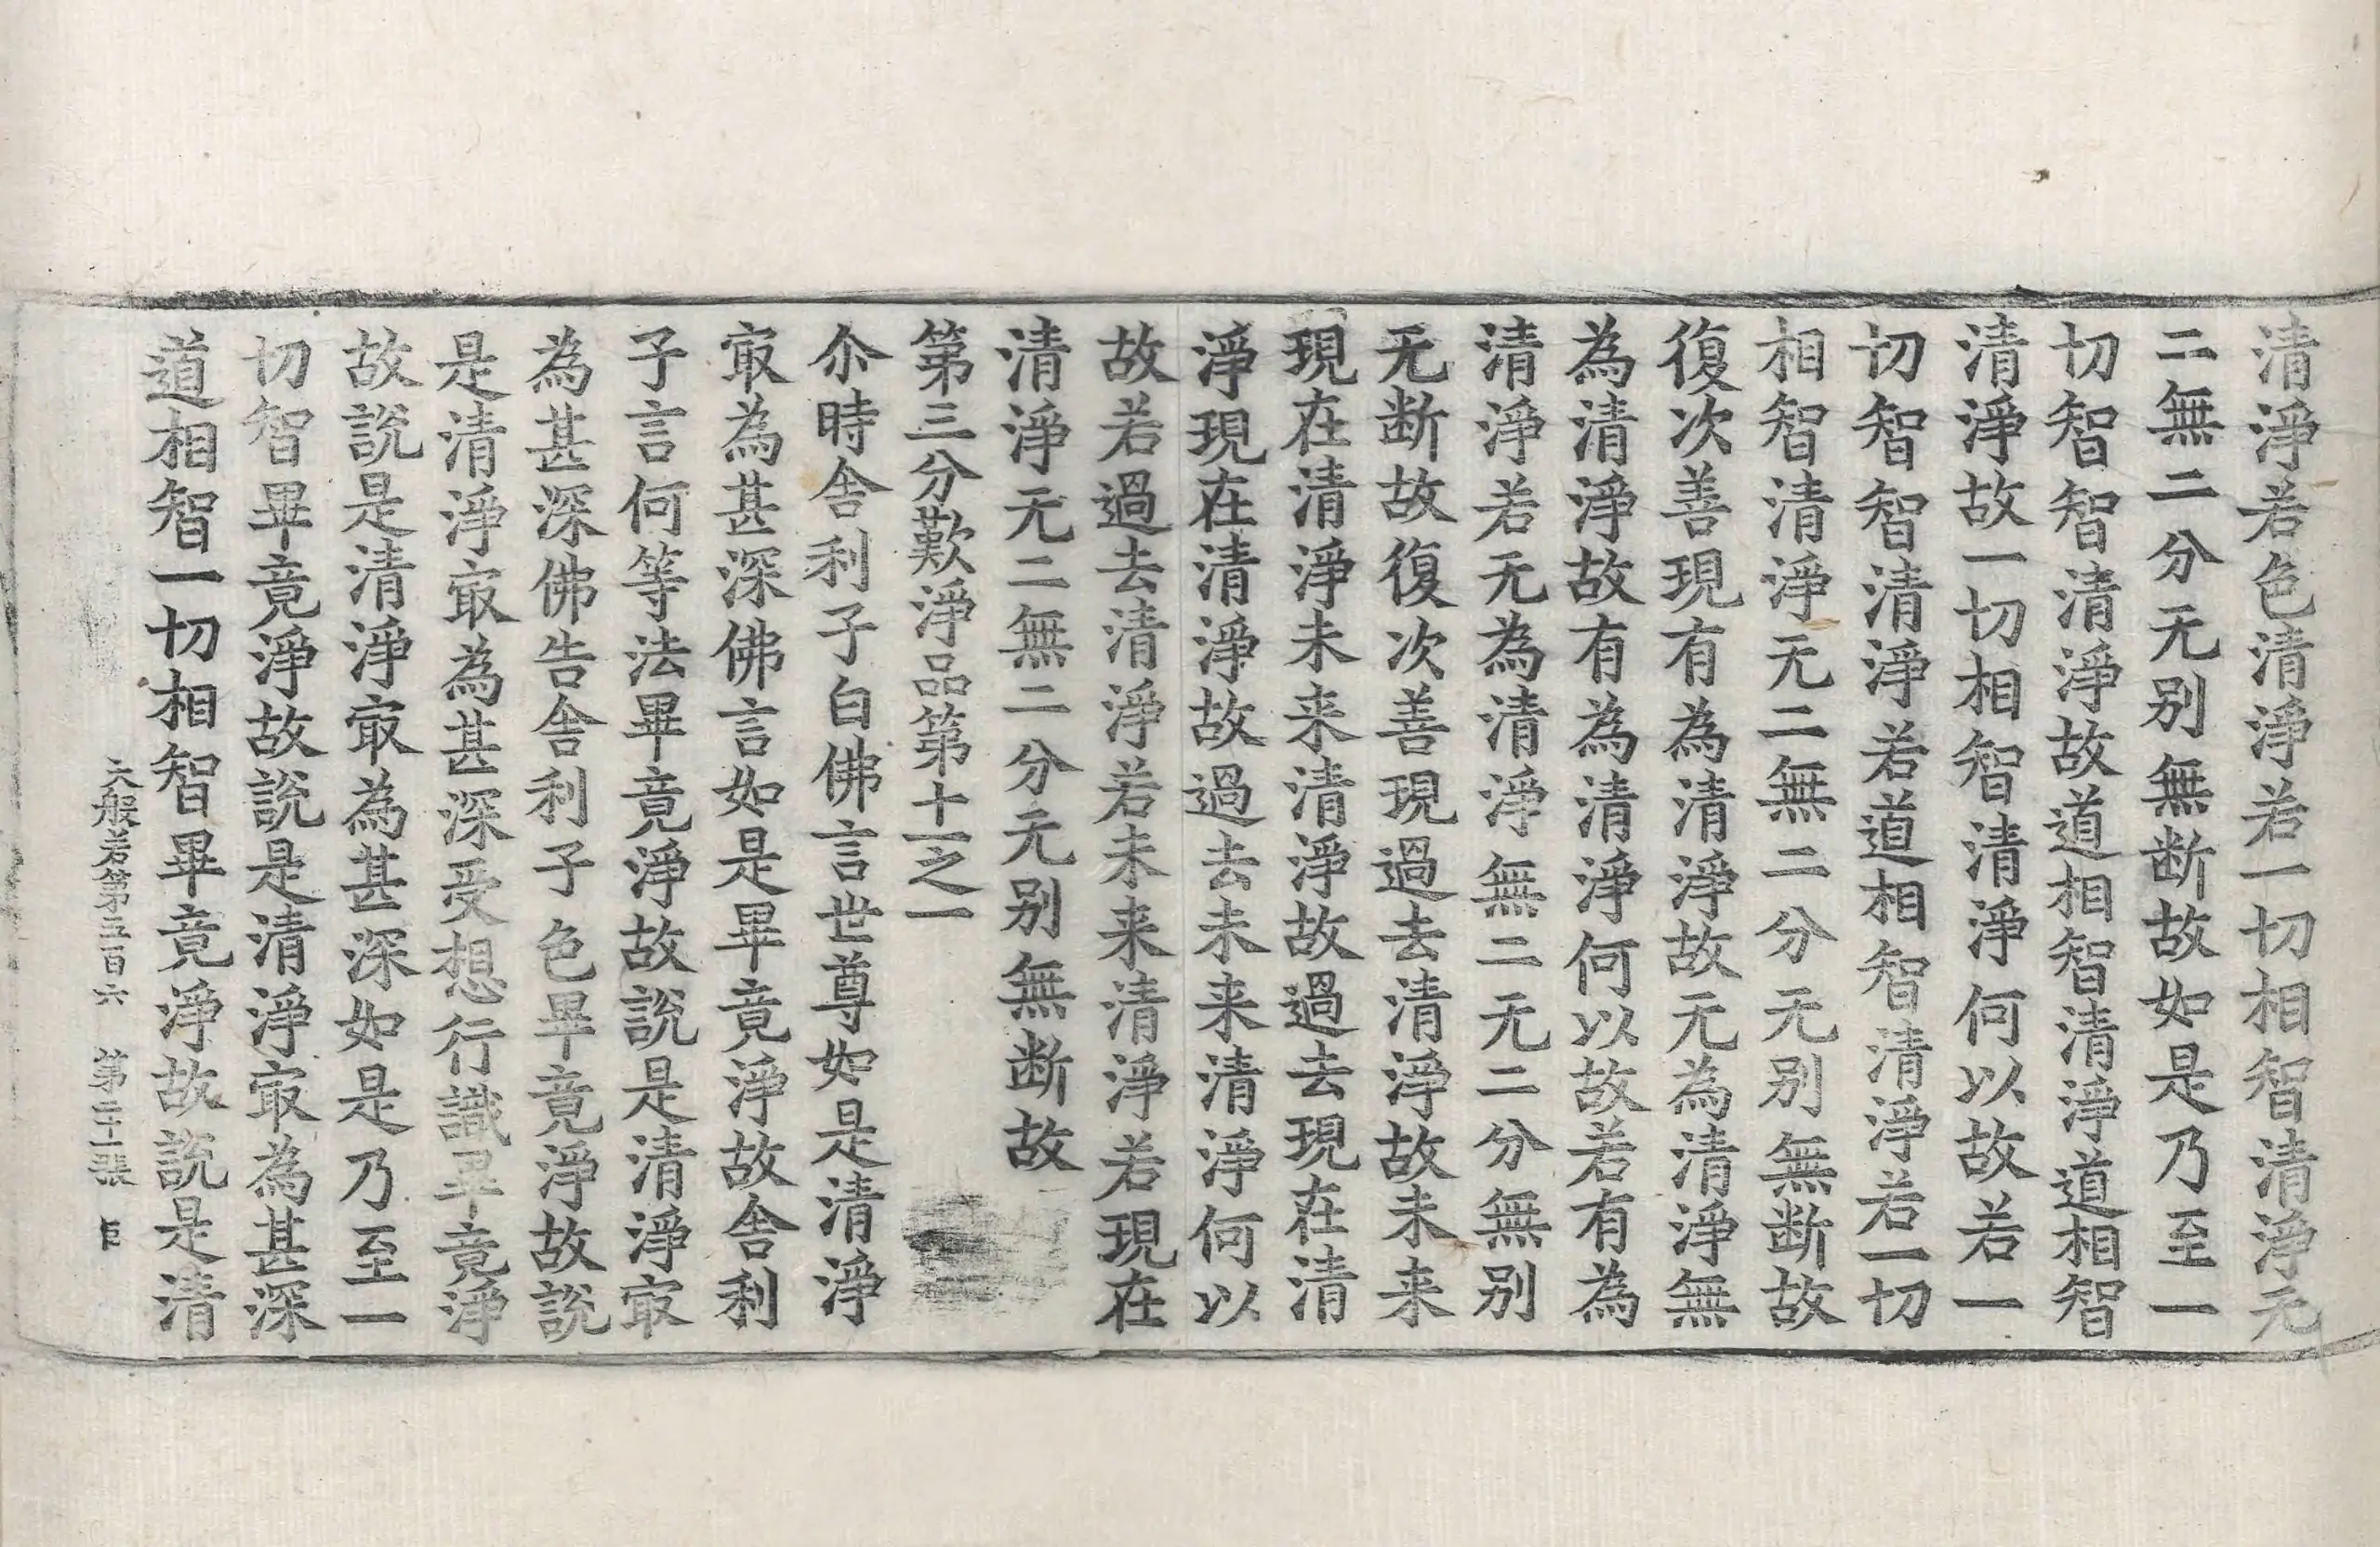 清淨若色清淨若一切相智清淨无
二無二分无别無断故如是乃至一
切智智清淨故道相智清淨道相智
清淨故一切相智清淨何以故若一
切智智清淨若道相智清淨若一切
相智清淨无二無二分无别無断故
復次善現有為清淨故无為清淨無
為清淨故有為清淨何以故若有為
清淨若无為清淨無二无二分無别
无断故復次善現過去清淨故未来
現在清淨未来清淨故過去現在清
淨現在清淨故過去未来清淨何以
故若過去清淨若未来清淨若現在
清淨无二無二分无别無断故
第三分歎淨品第十一之一
尒時舎利子白佛言世尊如是清淨
㝡為甚深佛言如是畢竟淨故舎利
子言何等法畢竟淨故說是清淨㝡
為甚深佛告舎利子色畢竟淨故說
是清淨㝡為甚深受想行識畢竟淨
故說是清淨㝡為甚深如是乃至一
切智畢竟淨故說是清淨㝡為甚深
道相智一切相智畢竟淨故說是清
大般若第五百六 第二十一張